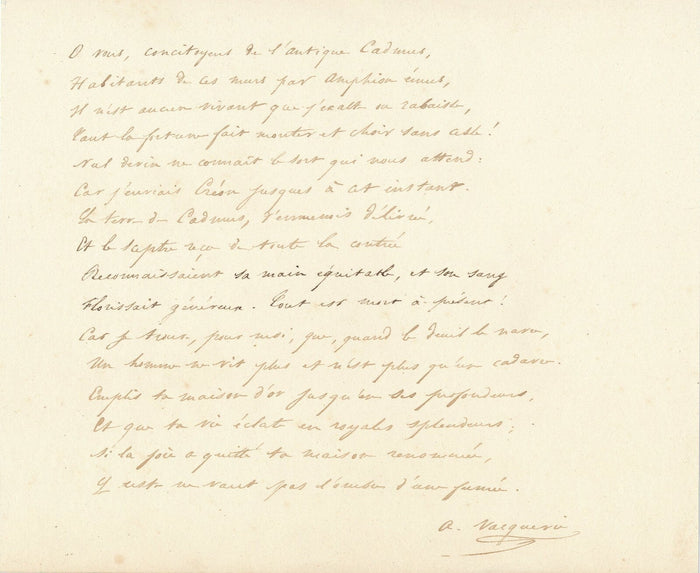 O vous, concitoyens de l'antique Cadmus,
Habitants de ces murs par Amphion émus,
Il n'est aucun vivant que j'exalte ou rabaisse,
Tant la fortune fait monter et choir sans cesse!
Nul devin ne connaît le sort qui nous attend:
Car j'enviais Créon jusques à cet instant.
La terre de Cadmus, d'ennemis délivrée,
Et le sceptre reçu de toute la contrée
Reconnaissaient sa main équitable, et son sang
Florissait généreux. Tout est mort à présent!
Car je trouve, pour moi, que, quand le deuil le navre,
Un homme ne vit plus et n'est plus qu'un cadavre.
Emplis ta maison d'or jusqu'en ses profondeurs,
Et que ta vie éclate en royales splendeurs;
Si la joie a quitté ta maison renommée,
Le reste ne vaut pas l'ombre d'une fumée.
A. Vacquerie